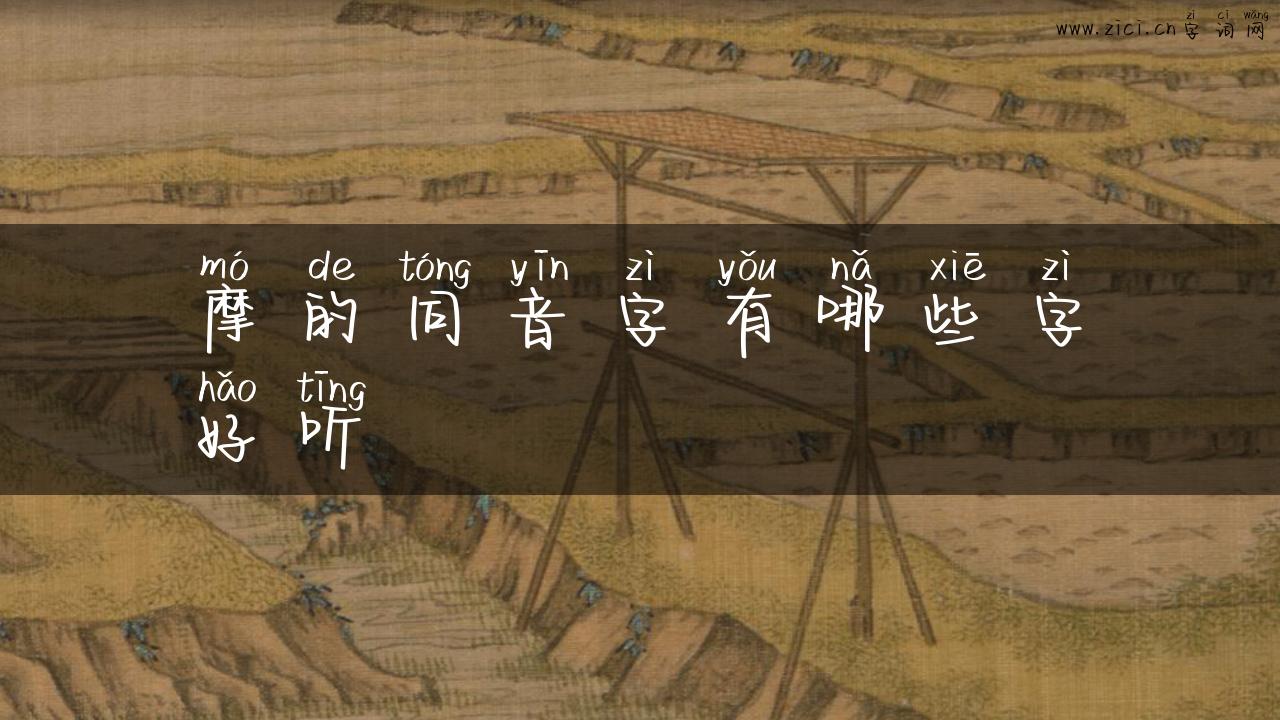 zì cí wǎng
www.zici.cn 字 词 网
mó de tóng yīn zì yǒu nǎ xiē zì
摩 的 同 音 字 有 哪 些 字
hǎo tīng
好 听